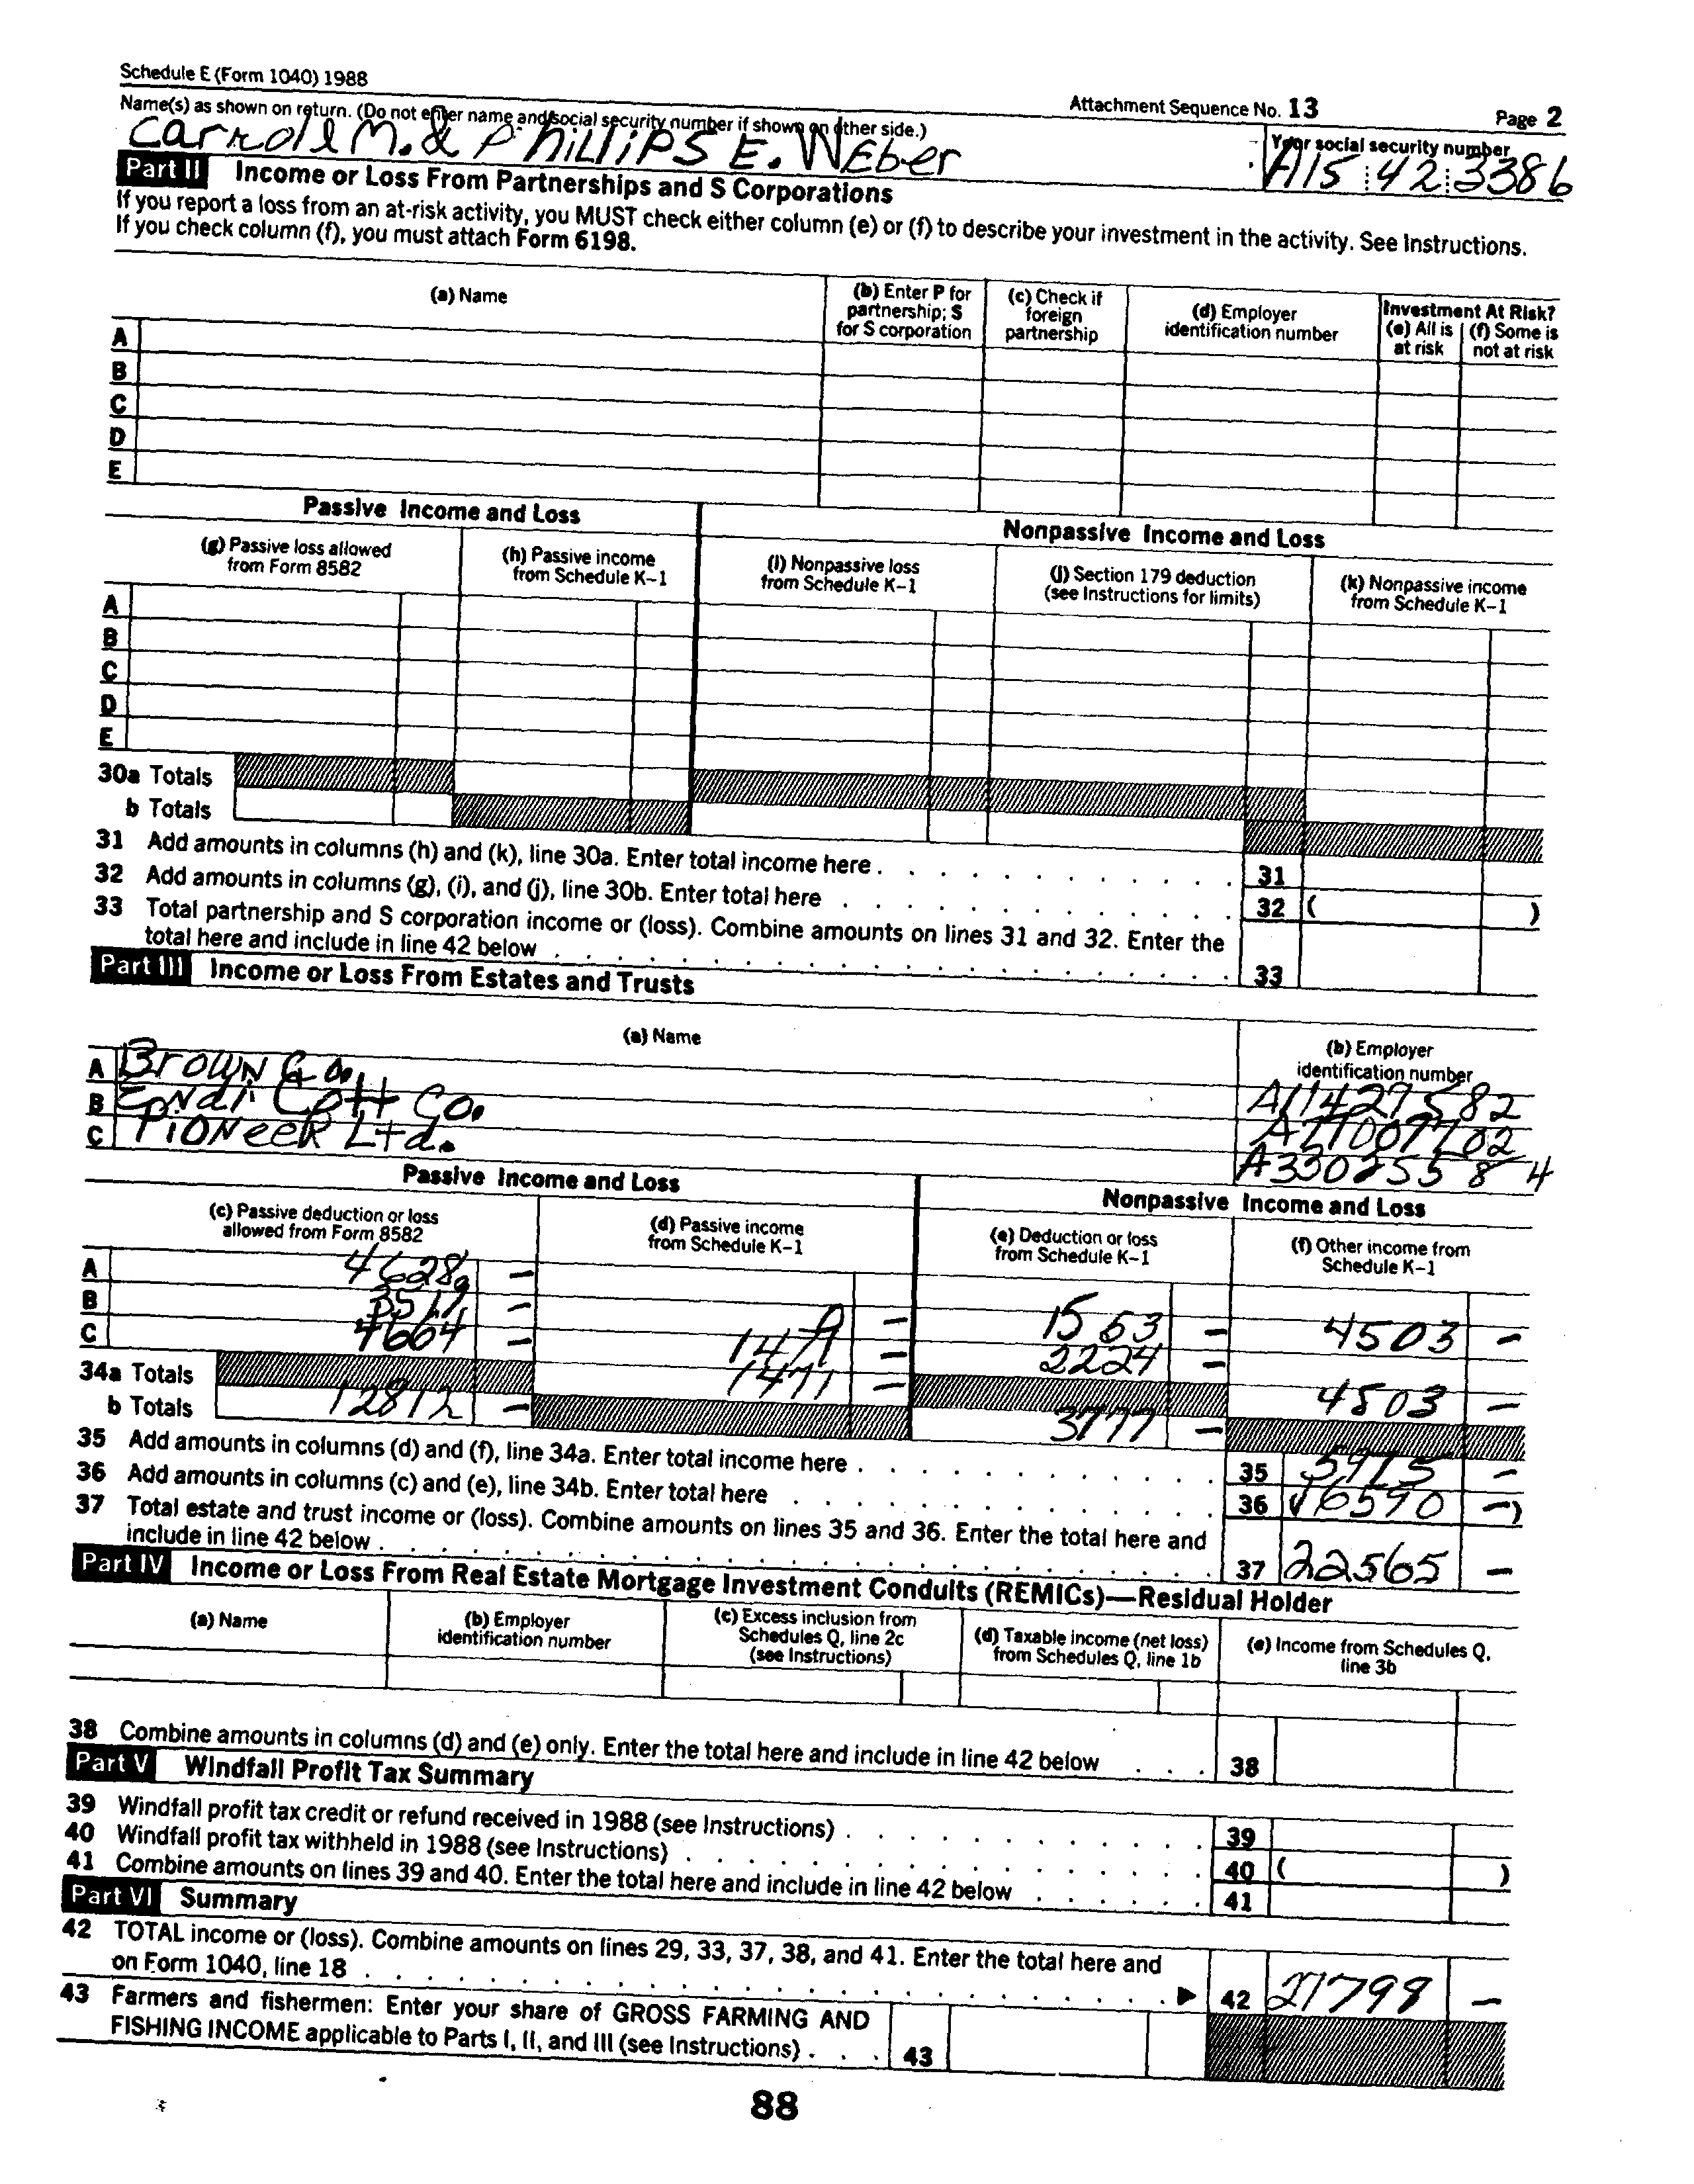 Schedule E (Form 1040) 1988
Attachment Sequence No. 13
Page 2
Name(s) as shown on return. (Do not enter name and social security number if shown on other side.)
Your social security number
Carrole M. & Phillips E. Weber
A15 42 3386
Part II Income or Loss From Partnerships and S Corporations
If you report a loss from an at-risk activity, you MUST check either column (e) or (f) to describe your investment in the activity. See Instructions.
If you check column (f), you must attach Form 6198.
(a) Name
(b) Enter P for partnership; S for S corporation
(c) Check if foreign partnership
(d) Employer identification number
Investment At Risk?
(e) All is at risk
(f) Some is not at risk
A
B
C
D
E
Passive Income and Loss
Nonpassive Income and Loss
(g) Passive loss allowed from Form 8582
(h) Passive income from Schedule K-1
(i) Nonpassive loss from Schedule K-1
(j) Section 179 deduction (see Instructions for limits)
(k) Nonpassive income from Schedule K-1
A
B
C
D
E
30a Totals
b Totals
31 Add amounts in columns (h) and (k), line 30a. Enter total income here . . . 31
32 Add amounts in columns (g), (i), and (j), line 30b. Enter total here . . . 32 ( )
33 Total partnership and S corporation income or (loss). Combine amounts on lines 31 and 32. Enter the
total here and include in line 42 below . . . 33
Part III Income or Loss From Estates and Trusts
(a) Name
(b) Employer identification number
A Brown Co.
B Co. 
C Pioneer Ltd. A33025584
Passive Income and Loss
Nonpassive Income and Loss
(c) Passive deduction or loss allowed from Form 8582
(d) Passive income from Schedule K-1
(e) Deduction or loss from Schedule K-1
(f) Other income from Schedule K-1
A 4628 –
B – – 1553 – 4503 –
C 4664 – 2224 –
34a Totals 1471 – 4503 –
b Totals 12812 – 3777 –
35 Add amounts in columns (d) and (f), line 34a. Enter total income here . . . 35 5975 –
36 Add amounts in columns (c) and (e), line 34b. Enter total here . . . 36 (16590 –)
37 Total estate and trust income or (loss). Combine amounts on lines 35 and 36. Enter the total here and
include in line 42 below . . . 37 22565 –
Part IV Income or Loss From Real Estate Mortgage Investment Conduits (REMICs)—Residual Holder
(a) Name
(b) Employer identification number
(c) Excess inclusion from Schedules Q, line 2c (see Instructions)
(d) Taxable income (net loss) from Schedules Q, line 1b
(e) Income from Schedules Q, line 3b
38 Combine amounts in columns (d) and (e) only. Enter the total here and include in line 42 below . . . 38
Part V Windfall Profit Tax Summary
39 Windfall profit tax credit or refund received in 1988 (see Instructions) . . . 39
40 Windfall profit tax withheld in 1988 (see Instructions) . . . 40 ( )
41 Combine amounts on lines 39 and 40. Enter the total here and include in line 42 below . . . 41
Part VI Summary
42 TOTAL income or (loss). Combine amounts on lines 29, 33, 37, 38, and 41. Enter the total here and
on Form 1040, line 18 . . . ▶ 42 21798 –
43 Farmers and fishermen: Enter your share of GROSS FARMING AND
FISHING INCOME applicable to Parts I, II, and III (see Instructions) . . . 43
88